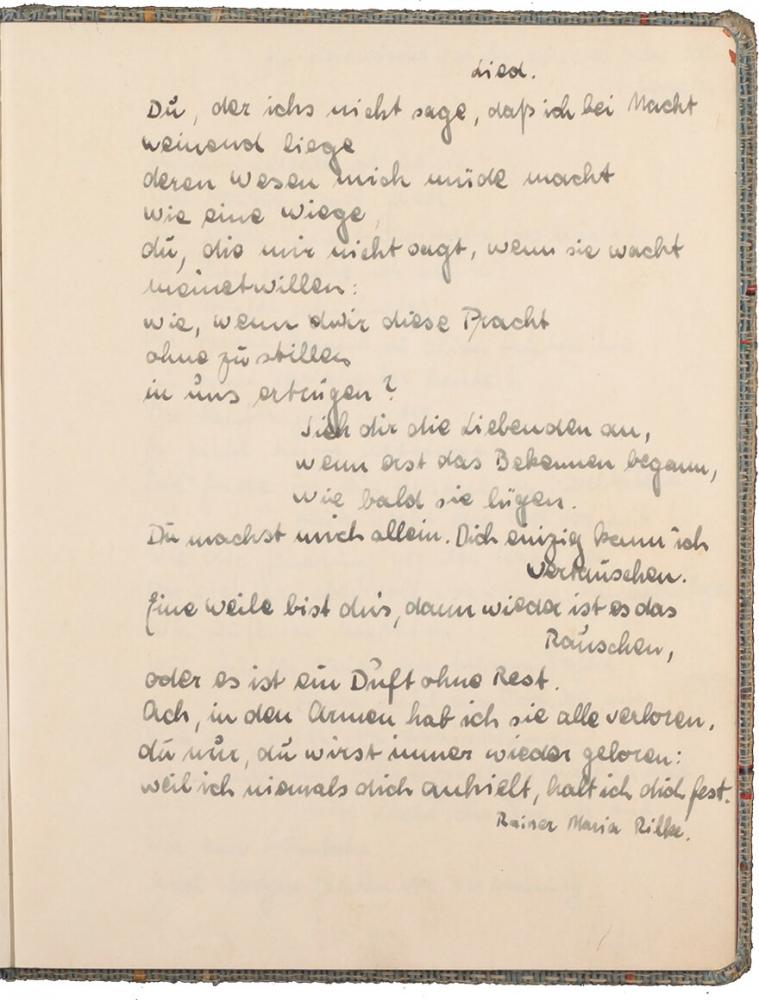 Lied.
Du, der ichs nicht sage, daß ich bei Nacht
weinend liege
deren Wesen mich müde macht
wie eine Wiege,
du, die mir nicht sagt, wenn sie wacht
meinetwillen:
wie, wenn wir diese Pracht
ohne zu stillen
in uns ertrügen?
Sieh dir die Liebenden an,
wenn erst das Bekennen begann,
wie bald sie lügen.
Du machst mich allein. Dich einzig kann ich
vertauschen.
Eine Weile bist dus, dann wieder ist es das
Rauschen,
oder es ist ein Duft ohne Rest.
Ach, in den Armen hab ich sie alle verloren,
du nur, du wirst immer wieder geboren:
weil ich niemals dich anhielt, halt ich dich fest.
Rainer Maria Rilke.